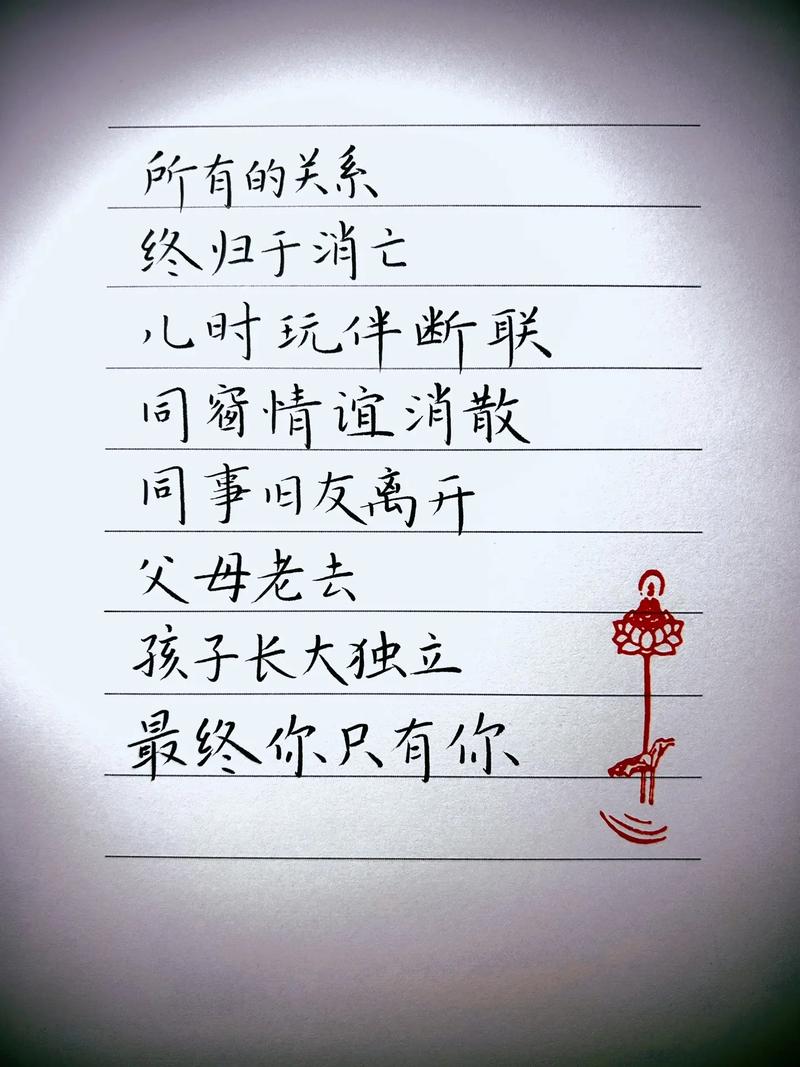 所有的关系
终归于消亡
儿时玩伴断联
同窗情谊消散
同事旧友离开
父母老去
孩子长大独立
最终你只有你